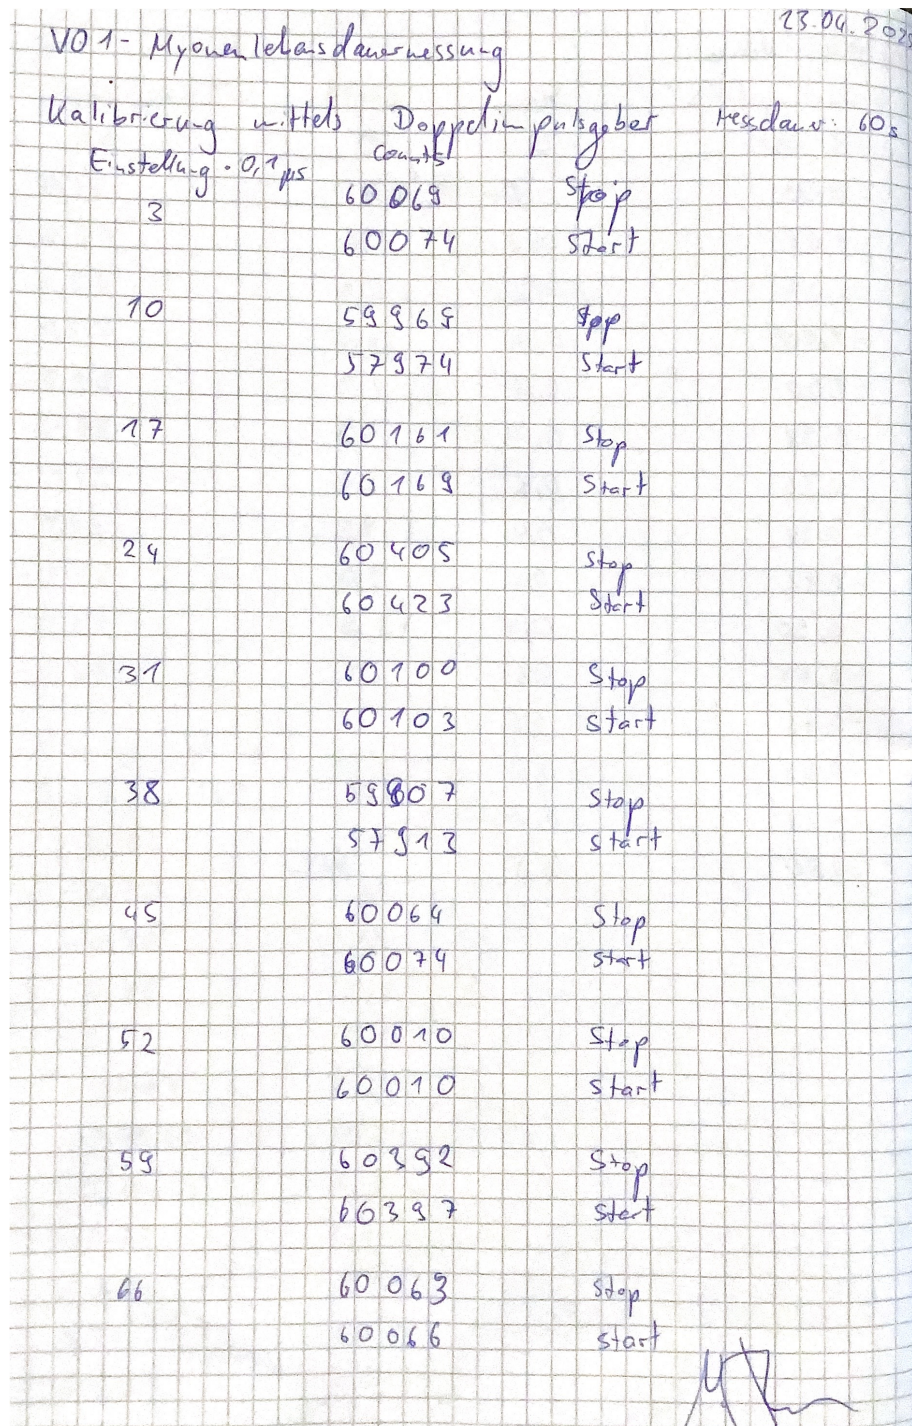 23.04.202
V01 - Myonenlebensdauermessung
Kalibrierung mittels Doppelimpulsgeber Messdauer: 60s
Einstellung · 0,1 µs Counts
3 60069 Stop
60074 Start
10 59969 Stop
57974 Start
17 60161 Stop
60169 Start
24 60405 Stop
60423 Start
31 60100 Stop
60103 Start
38 59807 Stop
57913 Start
45 60064 Stop
60074 Start
52 60010 Stop
60010 Start
59 60392 Stop
60397 Start
66 60063 Stop
60066 Start